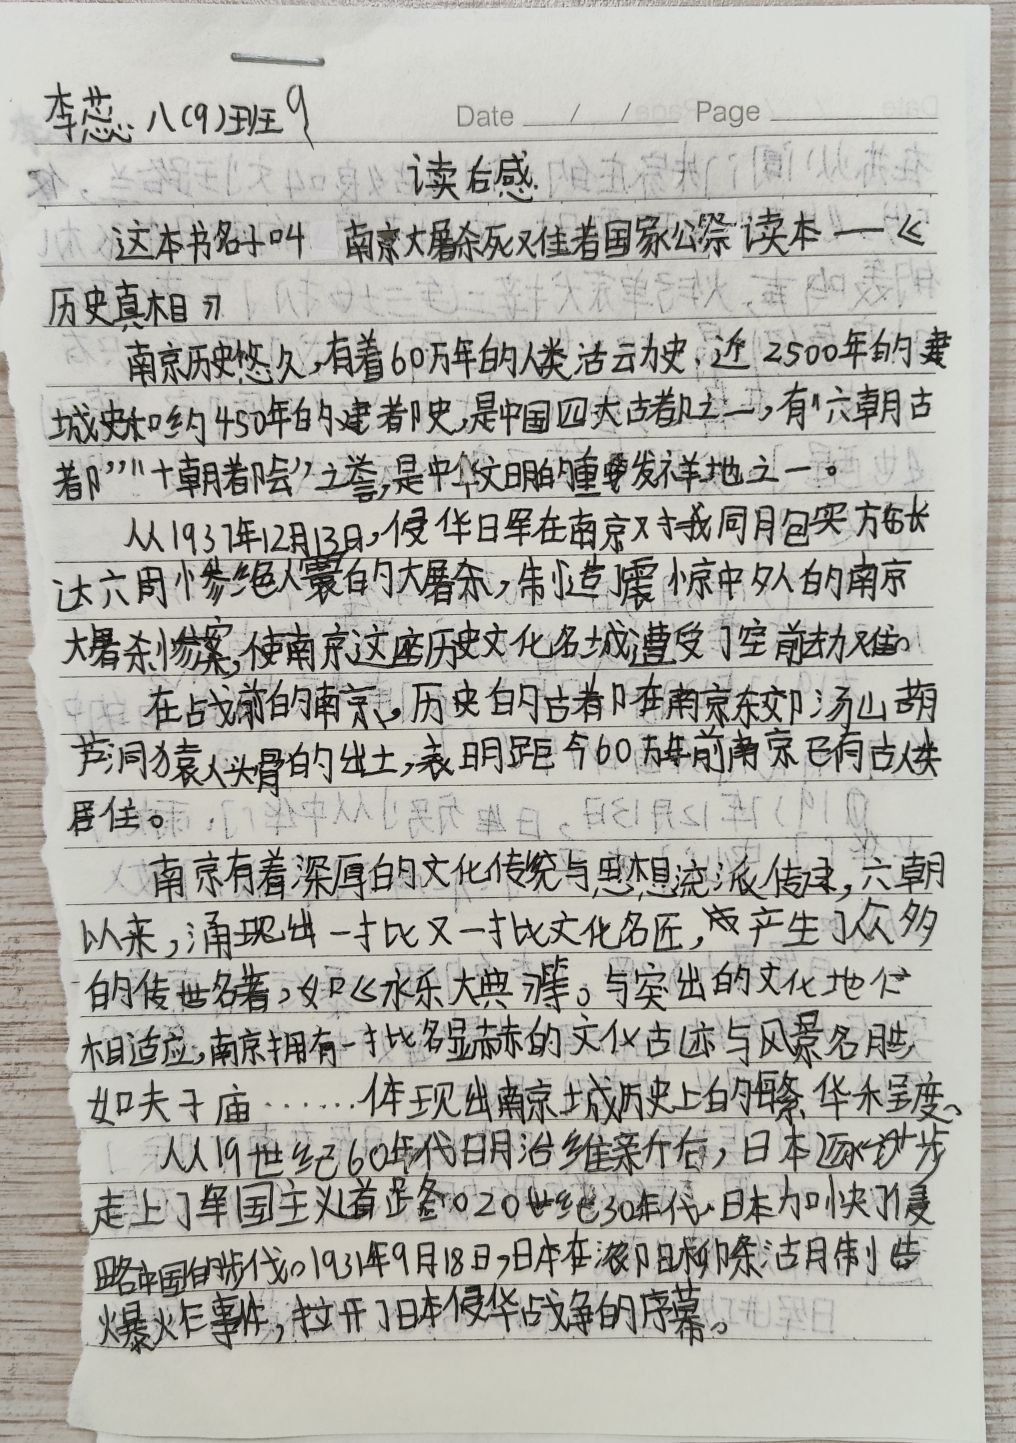 李蕊 八(9)班 9
Date / / Page
读右感.
这本书名叫 南京大屠杀死难者国家公祭读本——《
历史真相》
南京历史悠久,有着60万年的人类活动史,近2500年的建
城史和约450年的建都史,是中国四大古都之一,有"六朝古
都""十朝都会"之誉,是中华文明的重要发祥地之一。
从1937年12月13日,侵华日军在南京对我同月包实方长
达六周惨绝人寰的大屠杀,制造了震惊中外的南京
大屠杀惨案,使南京这座历史文化名城遭受了空前劫难。
在占战前的南京,历史的古都在南京东郊汤山葫
芦洞猿人头骨的出土,表明距今60万年前南京已有古人类
居住。
南京有着深厚的文化传统与思想流派传承,六朝
以来,涌现出一批又一批文化名匠,产生了众多
的传世名著,如《永乐大典》等。与突出的文化地位
相适应,南京拥有一批名显赫的文化古迹与风景名胜
如夫子庙……体现出南京城历史上的繁华程度。
从19世纪60年代明治维新后,日本逐步
走上了军国主义道路。20世纪30年代,日本加快了侵
略中国的步伐。1931年9月18日,日本在沈阳柳条沽月制造
爆炸事件,拉开了日本侵华战争的序幕。